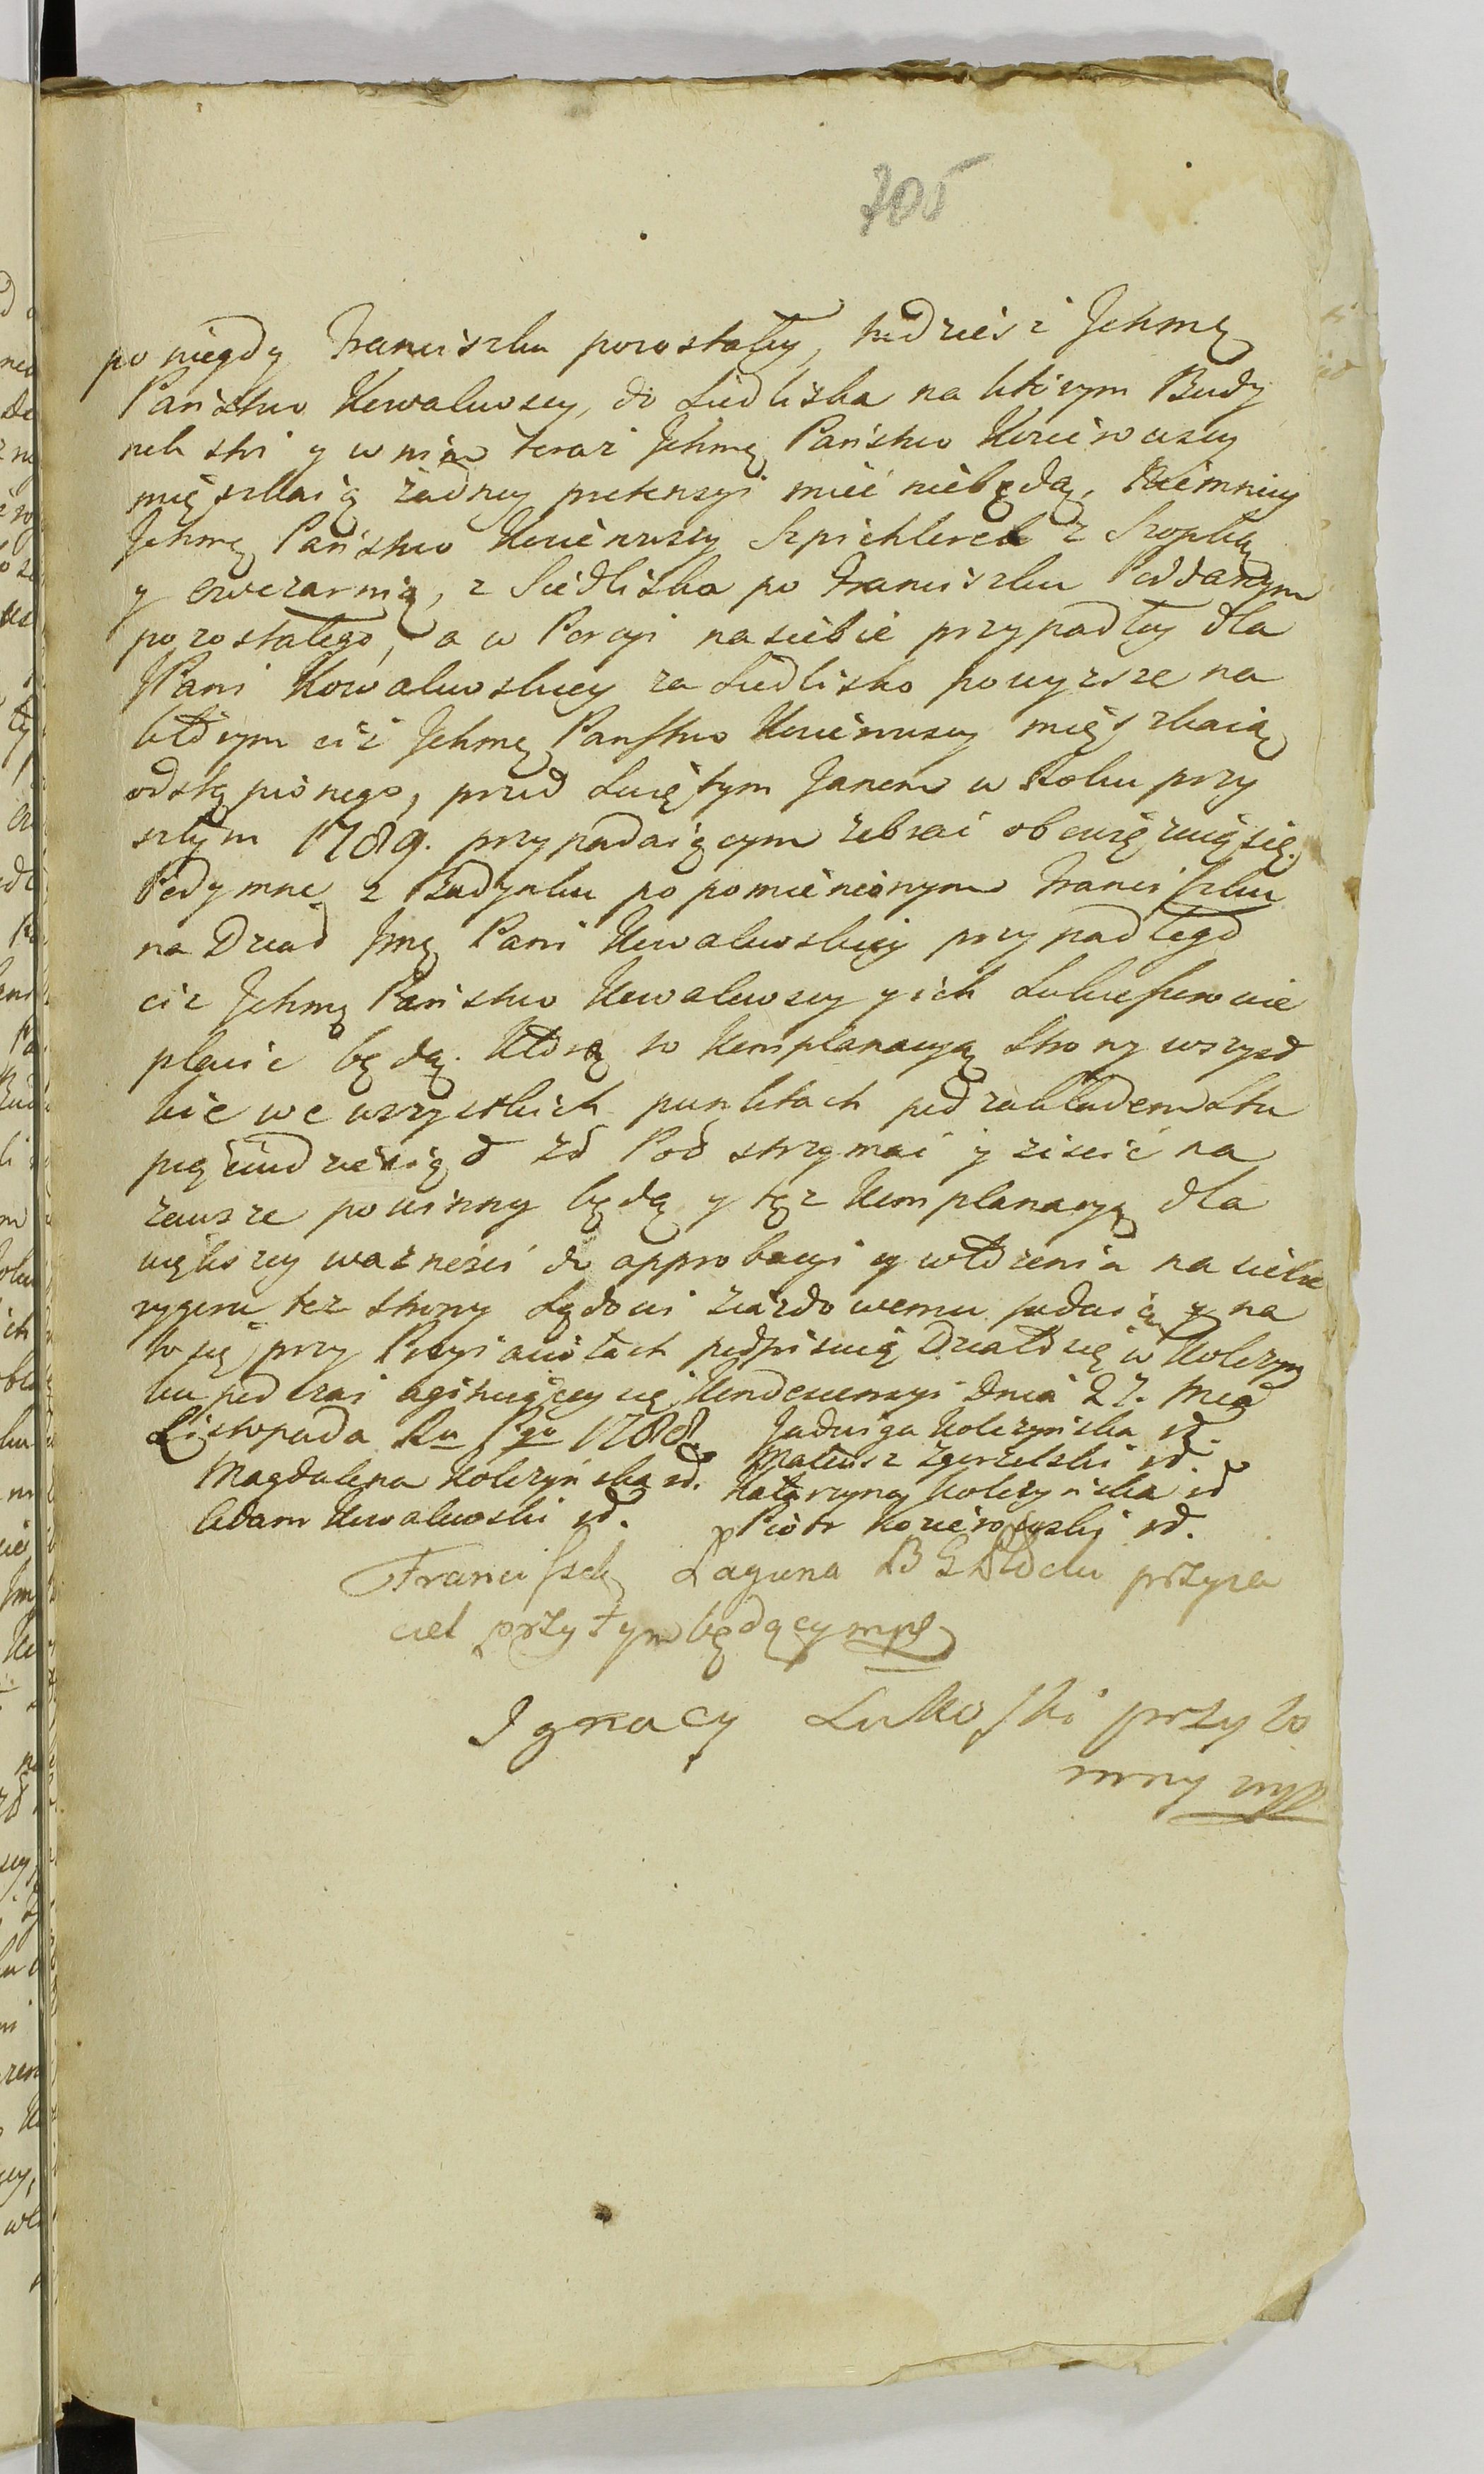 705
po niegdy Franciszku pozostałey, tudzież i Jchmę
Państwo Kowalewscy, do Siedliska na którym Budy
nek stoi y w nim teraz Jchmę Państwo
mięszkaią żadney pretensyi mieć niebędą. Niemniey
Jchmę Państwo Szpichlerek z Szopką
y owczarnią, z Siedliska po Franciszku Poddanym
pozostałego, a w Porcyi na siebie przypadłey dla
JPani Kowalewskiey za Siedlisko powyzsze na
którym ciż Jchmę Panstwo mięszkaią
odstąpionego, przed Świętym Janem w Roku przy
szłym 1789. przypadaiącym zebrać obowięzuią się.
Podymne z Budynku po pomienionym Franciszku
na Dział Jmę Pani Kowalewskiey przypadłego
ciż Jchmę Państwo Kowalewscy y ich Sukcessorowie
płacić będą. Którą to Komplanacyą Strony wszyst
kie we wszystkich punktach pod zakładem Stu
pięciudziesiąt zł Pol strzymać y ziścić na
zawsze powinny będą y tęż Komplanacyą dla
większey ważności do approbacyi y włożenia na siebie
rygoru też strony Sądowi Ziazdowemu podaią y na
to się przy Przyiaciołach podpisuią Działo się w Kolczyn
ku podczas agituiącey się Kondescensyi Dnia 27. Mca
Listopada Ru 1788. Jadwiga Kolczyńska
Magdalena Kolczyńska Mateusz Zgorzelski
Katarzyna Kolczyńska
Adam Kowalewski Piotr
Franciszek Łaguna przyia
ciel przy tym będący mpp
Ignacy przyto
mny mpp